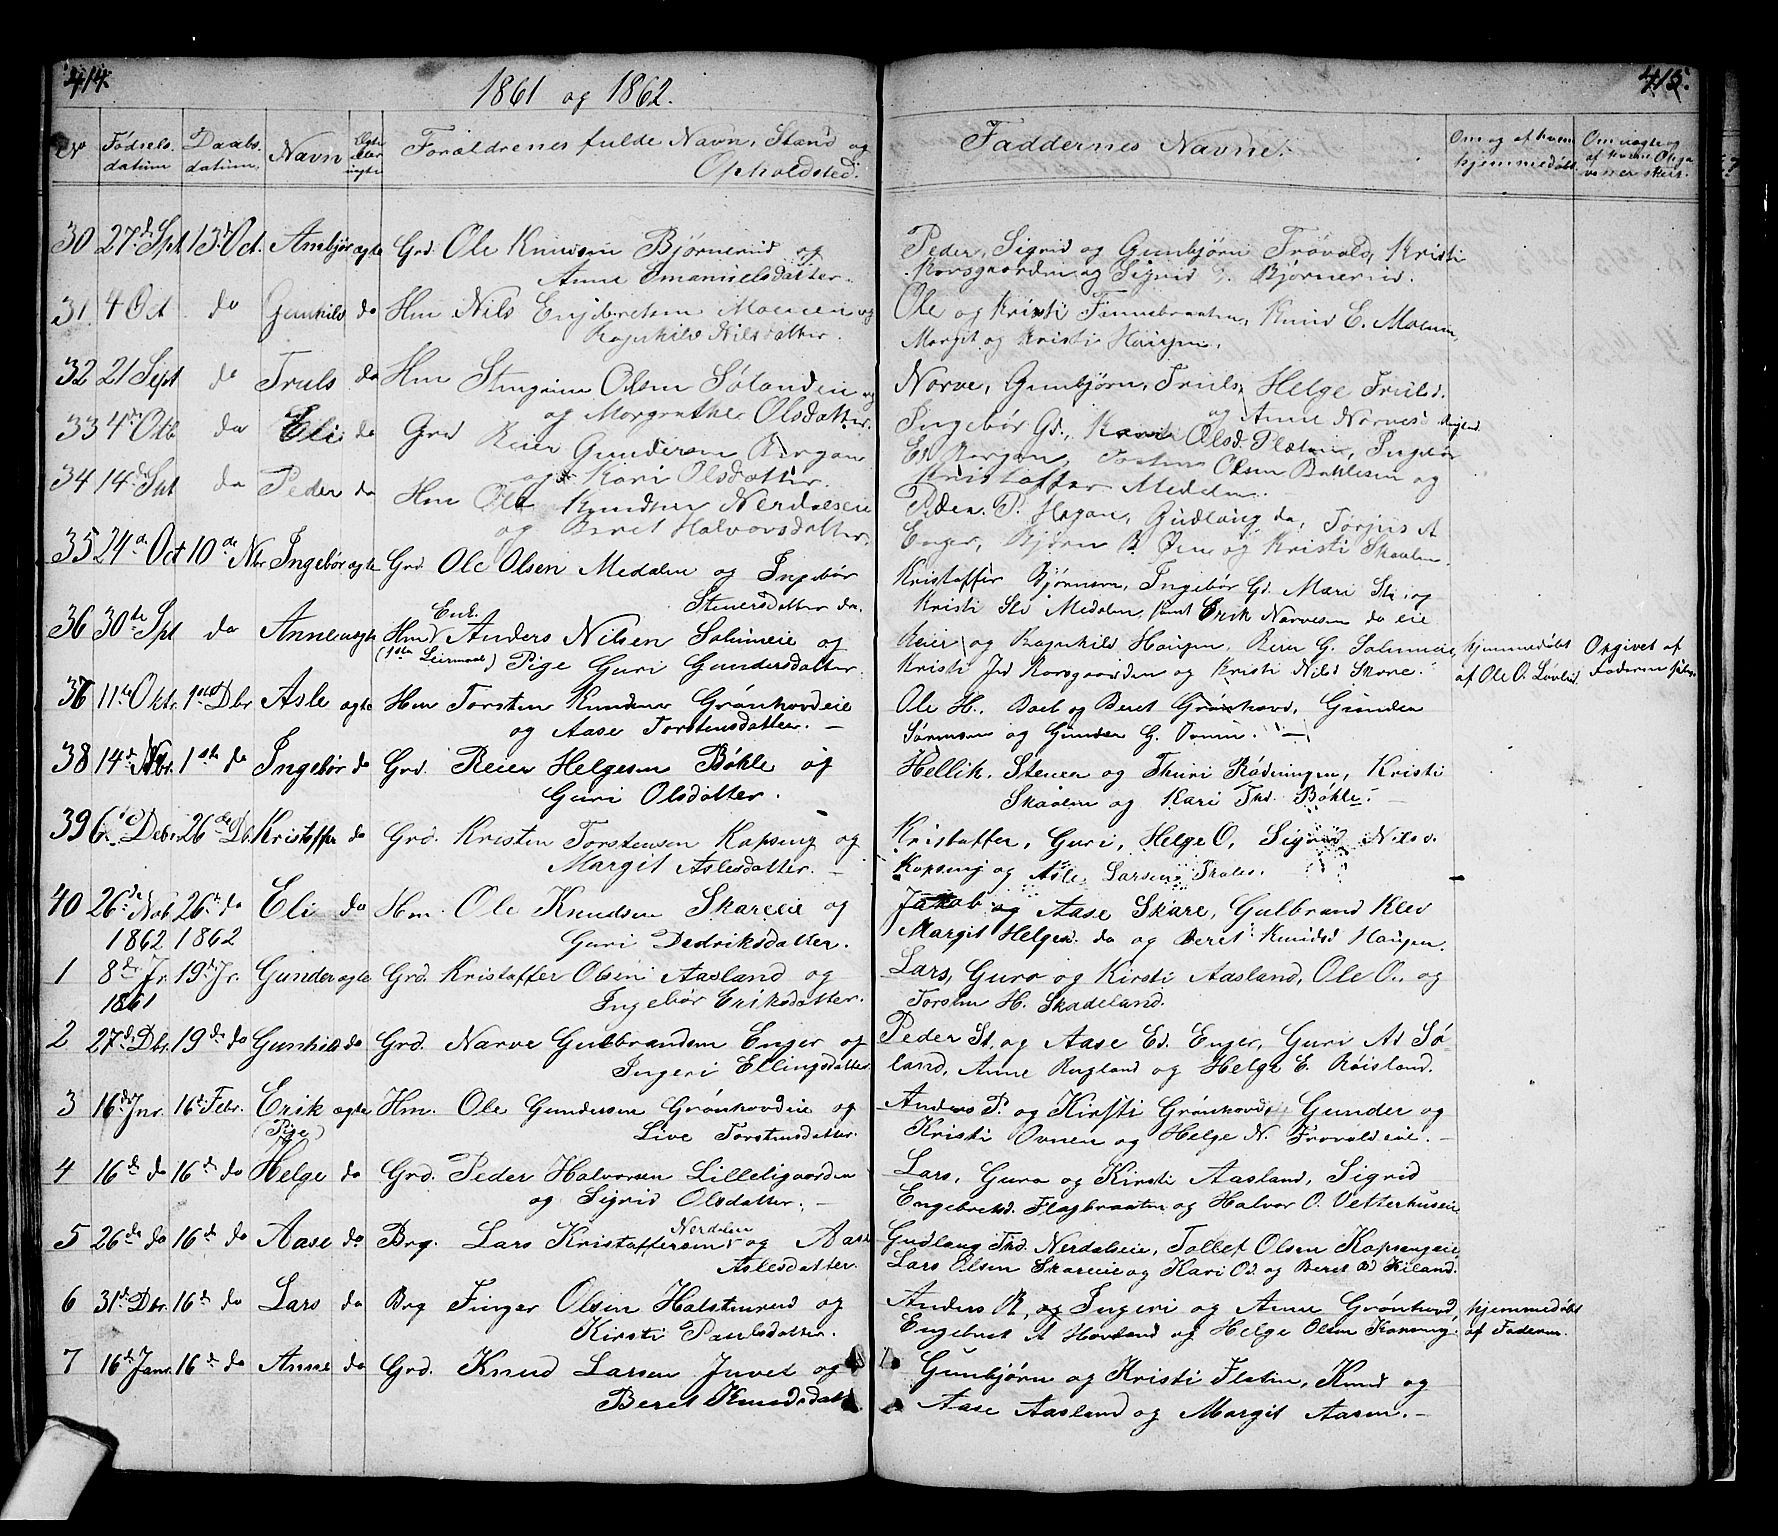 414.
1861 og 1862.
No Fødsels datum Daabs datum Navn Egte eller uægte Forældrenes fulde Navn, Stand og Opholdsted.
30 27de Spt 13de Oct. Anbjør ægte Grd Ole Knudsen Bjørnerud og
Anne Emanuelsdatter.
31. 4 Oct do Gunhild do Hm Nils Engbretsen Moeneie og
Ragnhild Nilsdatter.
32 21 Sept do Truls do Hm Stengrim Olsen Sølandeie og
og Morgrethe Olsdatter.
33 4de Octb do Eli do Grd Reier Gundersen Rorgan
og Kari Olsdatter.
34 14de Spt do Peder do Hm Ole Knudsen Nerdalseie
og Beret Halvorsdatter.
35 24de Oct 10de Nbr Ingebør ægte Grd Ole Olsen Medalen og Ingebør
Stenersdatter do.
36 30te Spt do Anne uægte Hm Enk. Anders Nilsen Solumeie og
(1ste Leiermaal) Pige Guri Gundersdatter.
37 11te Oktr. 1ste Dbr Asle ægte Hm Torsten Knudsen Grønhovdeie
og Aase Torstensdatter. —
38 14de Nbr. 1ste do Ingebør do Grd. Reier Helgesen Bøhle og
Guri Olsdatter.
39 6te Debr. 26de Db. Kristoffer do Grd. Kristen Torstensen Kopseng og
Margit Aslesdatter. —
40 26de Nob 26de do Eli do Hm. Ole Knudsen Skareeie og
1862 1862 Guri Dedriksdatter.
1 8de Jr. 19de Jr. Gunder ægte Grd. Kristoffer Olsen Aasland og
1861 Ingebør Eriksdatter.
2 27de Dbr. 19de do Gunhild do Grd. Narve Gulbrandsen Enger og
Ingeri Ellingsdatter
3 16de Jnr. 16de Febr. Erik ægte Hm. Ole Gundersen Grønhovdeie og
(Pige) Live Torstensdatter.
4 16de do 16de do Helge do Grd. Peder Halvorsen Lilleligaarden
og Sigrid Olsdatter. —
5 26de do 16de do Aase do Brg. Lars Kristoffersen Nerdalen og Aase
Aslesdatter.
6 31de Dbr. 16de do Lars do Brg Finger Olsen Halstenrud og
Kirsti Paulsdatter.
7 16de Janr. 16de do Anne do Grd. Knud Larsen Juvet og
Beret Knudsdat
415.
Faddernes Navne. Om og af hvem hjemmedøbt. Om uægte og af hvem Opgivelsen skeet.
Peder, Sigrid og Gunbjørn Trovald, Kristi
Korsgaarden og Sigrid Bjørnerud.
Ole og Kristi Finnebraaten, Knud E. Moeneie,
Margit og Kristi Haugen.
Norve, Gunbjørn, Truls, Helge Trulsd.
og Anne Norvesd. Rugland.
Ingebør Gd., Olsd. Flaten, Ingebør
Ed. Rorgan, Olsen Bøhleseie og
Kristoffer Medalen.
Peder P. Hagan, Gudlaug do, Torjus A
Enger, Bjørn B. Øen og Kristi Skaalen.
Kristoffer Bjørnsen, Ingebør Gd. Mari Std. og
Kristi Sd Medalen, samt Erik Narvesen do eie
Reier og Ragnhild Haugen, Reier G. Solumeie, hjemmedøbt Opgivet af
Kristi Jnd Korsgaarden og Kristi Nilsd Skare. af Ole O. Løvlid. Faderen selv.
Ole H., Boel og Beret Grønhovd, Gunder
Sørensen og Gunder G. Ovnen. —
Hellik, Stener og Thuri Rødningen, Kristi
Skaalen og Kari Thd. Bøhle. —
Kristoffer, Guri, Helge O, Sigrid Nilsd.
Kopseng og Asle Larseng Trales. —
Jakob og Aase Skare, Gulbrand Klev
Margit Helgesd. do og Beret Knudsd Haugen.
Lars, Guro og Kirsti Aasland, Ole O. og
Torsten H. Skadeland.
Peder St. og Aase Ed. Enger, Guri At Sø-
land, Anne Rugland og Helge E. Røisland.
Anders P. og Kirsti Grønhovd, Gunder og
Kristi Ovnen og Helge N. Trovaldeie. —
Lars, Guro og Kirsti Aasland, Sigrid
Engebretsd. Flagbraaten og Halvor O. Vetterhuseie
Gudlaug Thd. Nerdalseie, Tollef Olsen Kopsengeie,
Lars Olsen Skareeie og Kari Od. og Beret Od Kiland.
Anders R, og Ingeri og Anne Grønhovd, hjemmedøbt
Engebret A Hovland og Helge Olsen Kopseng. af Faderen.
Gunbjørn og Kristi Flaten, Knud og
Aase Aasland og Margit Aasen. —